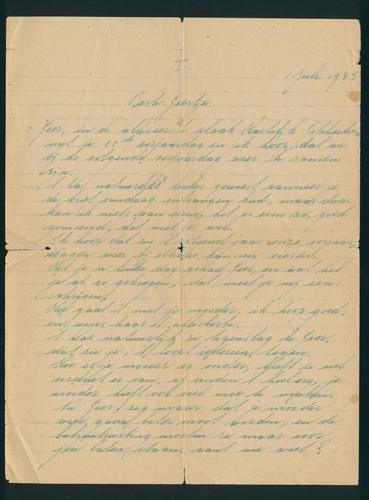 I
1 Juli 1945
Beste Geertje.
Geer, in de allereerste plaats Hartelijk Gefeliciteerd
met je 12de verjaardag en ik hoop, dat we
bij de volgende verjaardag weer te samen
zijn.
't Was natuurlijk leuker geweest wanneer je
de brief vandaag ontvangen had, maar daar
kan ik niets aan doen, het is even zo, goed
gemeend, dat weet je wel.
Ik hoop dat wij 't volgend jaar onze verjaar-
dagen weer bij elkaar kan vieren.
Heb je 'n leuke dag gehad Geer, en wat heb
je al zo gekregen, dat moet je mij eens
schrijven.
Hoe gaat 't met je moeder, ik hoop goed,
en wens haar 't allerbeste.
't Was natuurlijk 'n tegenslag he Geer,
dat zie je, 't loopt iedereen tegen.
Hoe is je moeder er onder, heeft ze veel
verdriet er van, wij vinden 't heel erg, je
moeder heeft ook wel mee te maken.
Nu Geer, zeg maar dat je moeder
vlug, gauw beter moet worden, en de
moeten ze maar voor
jou laten staan, want wie weet?